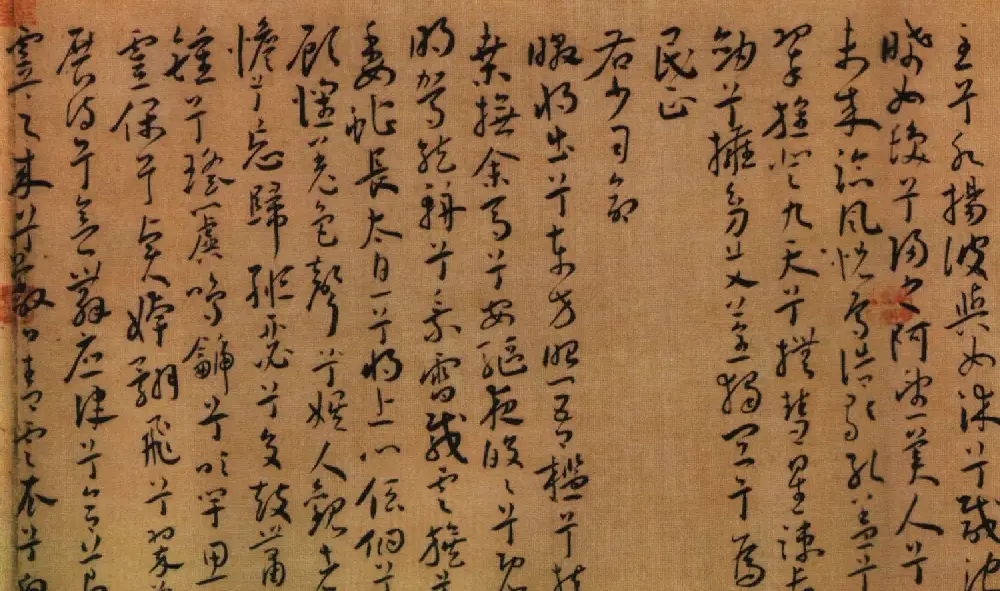 至兮水揚波與女沐兮咸池
晞女髮兮陽之阿望美人兮
未來臨風怳浩歌孔蓋兮
翠旍登九天兮撫彗星竦長
劍兮擁幼艾荃獨宜兮為
民正
右少司命
暾將出兮東方照吾檻兮扶
桑撫余馬兮安驅夜皎々兮既
明駕龍輈兮乘雷載雲旗兮
委蛇長太息兮將上心低佪兮
顧懷羌色聲兮娛人觀者
憺兮忘歸緪瑟兮交鼓簫
鍾兮瑤簴鳴龥兮吹竽思
靈保兮賢姱翾飛兮翠
展詩兮會舞應律兮合節
靈之來兮蔽日青雲衣兮白